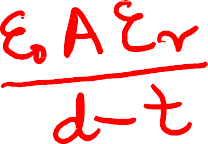 ε₀ A εr
d-t